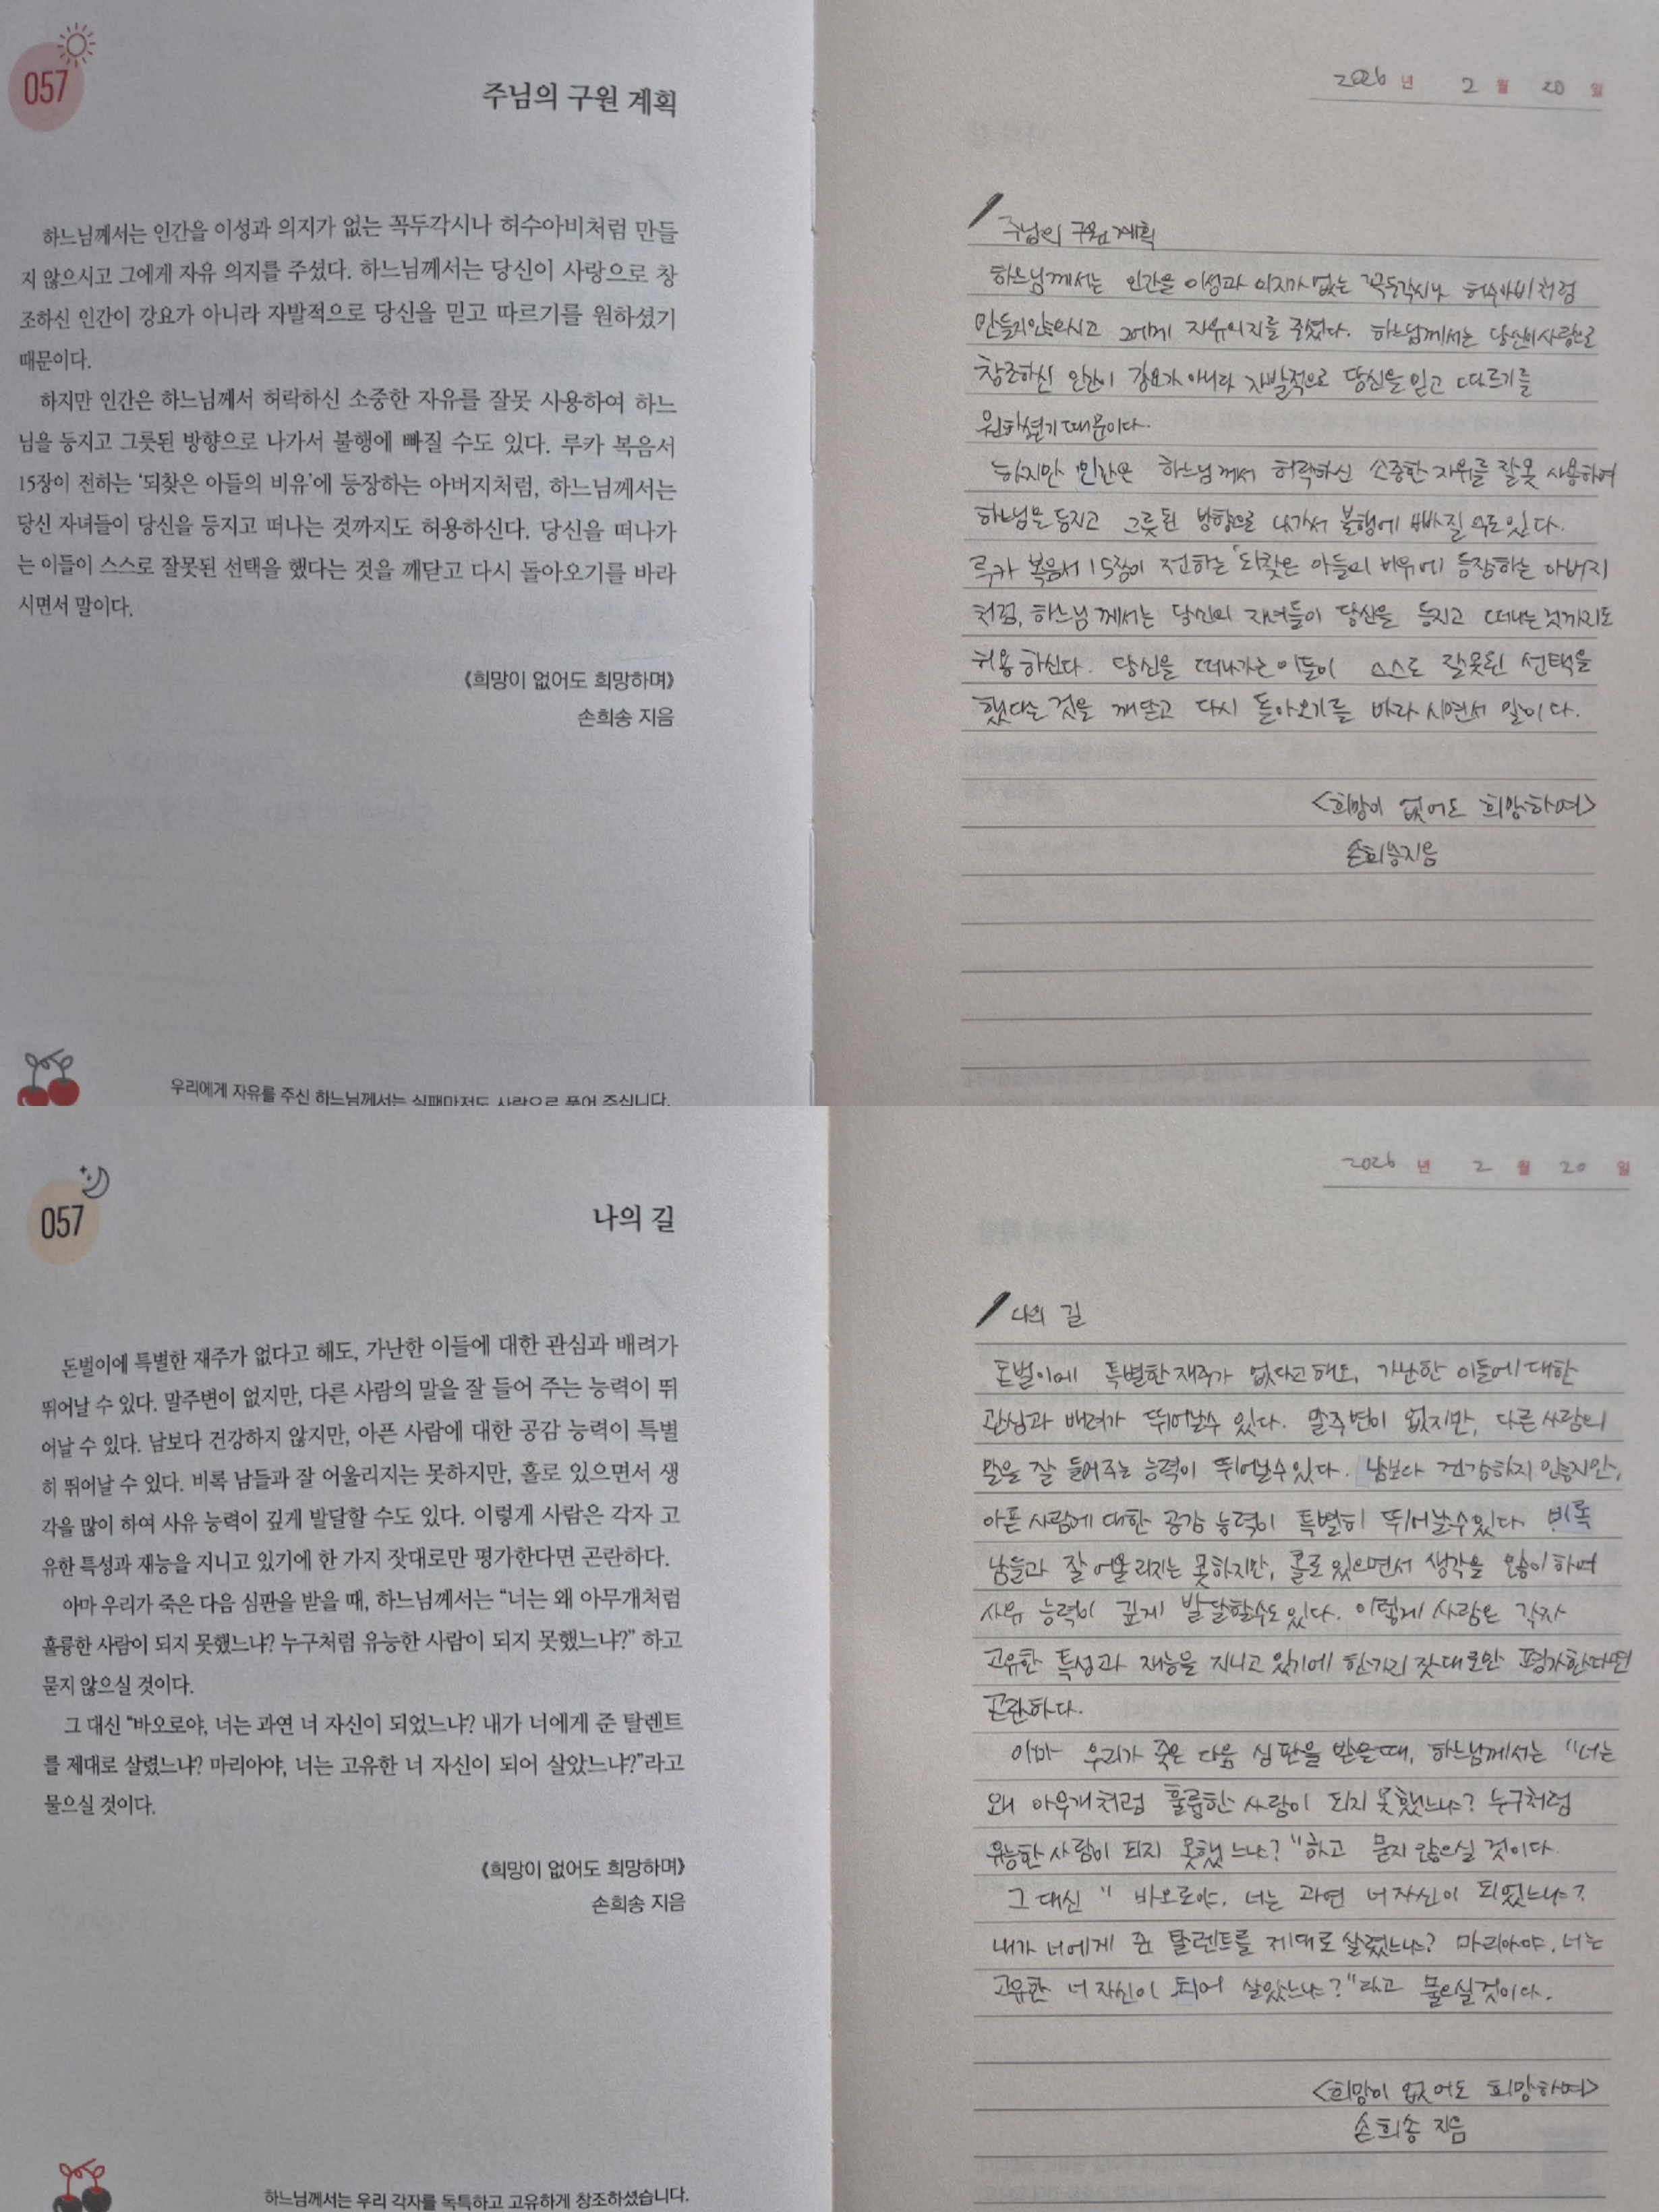 057
주님의 구원 계획
하느님께서는 인간을 이성과 의지가 없는 꼭두각시나 허수아비처럼 만들
지 않으시고 그에게 자유 의지를 주셨다. 하느님께서는 당신이 사랑으로 창
조하신 인간이 강요가 아니라 자발적으로 당신을 믿고 따르기를 원하셨기
때문이다.
하지만 인간은 하느님께서 허락하신 소중한 자유를 잘못 사용하여 하느
님을 등지고 그릇된 방향으로 나가서 불행에 빠질 수도 있다. 루카 복음서
15장이 전하는 ‘되찾은 아들의 비유’에 등장하는 아버지처럼, 하느님께서는
당신 자녀들이 당신을 등지고 떠나는 것까지도 허용하신다. 당신을 떠나가
는 이들이 스스로 잘못된 선택을 했다는 것을 깨닫고 다시 돌아오기를 바라
시면서 말이다.
《희망이 없어도 희망하며》
손희송 지음
우리에게 자유를 주신 하느님께서는 실패마저도 사랑으로 품어 주십니다.
2026 년 2 월 20 일
주님의 구원 계획
하느님께서는 인간을 이성과 의지가 없는 꼭두각시나 허수아비처럼
만들지않으시고 그에게 자유의지를 주셨다. 하느님께서는 당신이사랑으로
창조하신 인간이 강요가 아니라 자발적으로 당신을 믿고 따르기를
원하셨기때문이다.
하지만 인간은 하느님께서 허락하신 소중한 자유를 잘못 사용하여
하느님을 등지고 그릇된 방향으로 나가서 불행에 빠질 수도있다.
루카 복음서 15장이 전하는 '되찾은 아들의 비유'에 등장하는 아버지
처럼, 하느님께서는 당신의 자녀들이 당신을 등지고 떠나는것까지도
허용하신다. 당신을 떠나가는이들이 스스로 잘못된 선택을
했다는 것을 깨닫고 다시 돌아오기를 바라시면서 말이다.
<희망이 없어도 희망하며>
손희송지음
057
나의 길
돈벌이에 특별한 재주가 없다고 해도, 가난한 이들에 대한 관심과 배려가
뛰어날 수 있다. 말주변이 없지만, 다른 사람의 말을 잘 들어 주는 능력이 뛰
어날 수 있다. 남보다 건강하지 않지만, 아픈 사람에 대한 공감 능력이 특별
히 뛰어날 수 있다. 비록 남들과 잘 어울리지는 못하지만, 홀로 있으면서 생
각을 많이 하여 사유 능력이 깊게 발달할 수도 있다. 이렇게 사람은 각자 고
유한 특성과 재능을 지니고 있기에 한 가지 잣대로만 평가한다면 곤란하다.
아마 우리가 죽은 다음 심판을 받을 때, 하느님께서는 “너는 왜 아무개처럼
훌륭한 사람이 되지 못했느냐? 누구처럼 유능한 사람이 되지 못했느냐?” 하고
묻지 않으실 것이다.
그 대신 “바오로야, 너는 과연 너 자신이 되었느냐? 내가 너에게 준 탈렌트
를 제대로 살렸느냐? 마리아야, 너는 고유한 너 자신이 되어 살았느냐?”라고
물으실 것이다.
《희망이 없어도 희망하며》
손희송 지음
하느님께서는 우리 각자를 독특하고 고유하게 창조하셨습니다.
2026 년 2 월 20 일
나의 길
돈벌이에 특별한 재주가 없다고해도, 가난한 이들에대한
관심과 배려가 뛰어날수 있다. 말주변이 없지만, 다른사람의
말을 잘 들어주는 능력이 뛰어날수있다. 남보다 건강하지 않지만,
아픈 사람에 대한 공감 능력이 특별히 뛰어날수있다. 비록
남들과 잘 어울리지는 못하지만, 홀로 있으면서 생각을 많이하여
사유 능력이 깊게 발달할수도있다. 이렇게 사람은 각자
고유한 특성과 재능을 지니고 있기에 한가지 잣대로만 평가한다면
곤란하다.
아마 우리가 죽은 다음 심판을 받을때, 하느님께서는 "너는
왜 아무개처럼 훌륭한 사람이 되지 못했느냐? 누구처럼
유능한 사람이 되지 못했느냐?" 하고 묻지 않으실 것이다.
그 대신 " 바오로야, 너는 과연 너자신이 되었느냐?
내가 너에게 준 탈렌트를 제대로 살렸느냐? 마리아야, 너는
고유한 너 자신이 되어 살았느냐?"라고 물으실것이다.
<희망이 없어도 희망하며>
손희송 지음